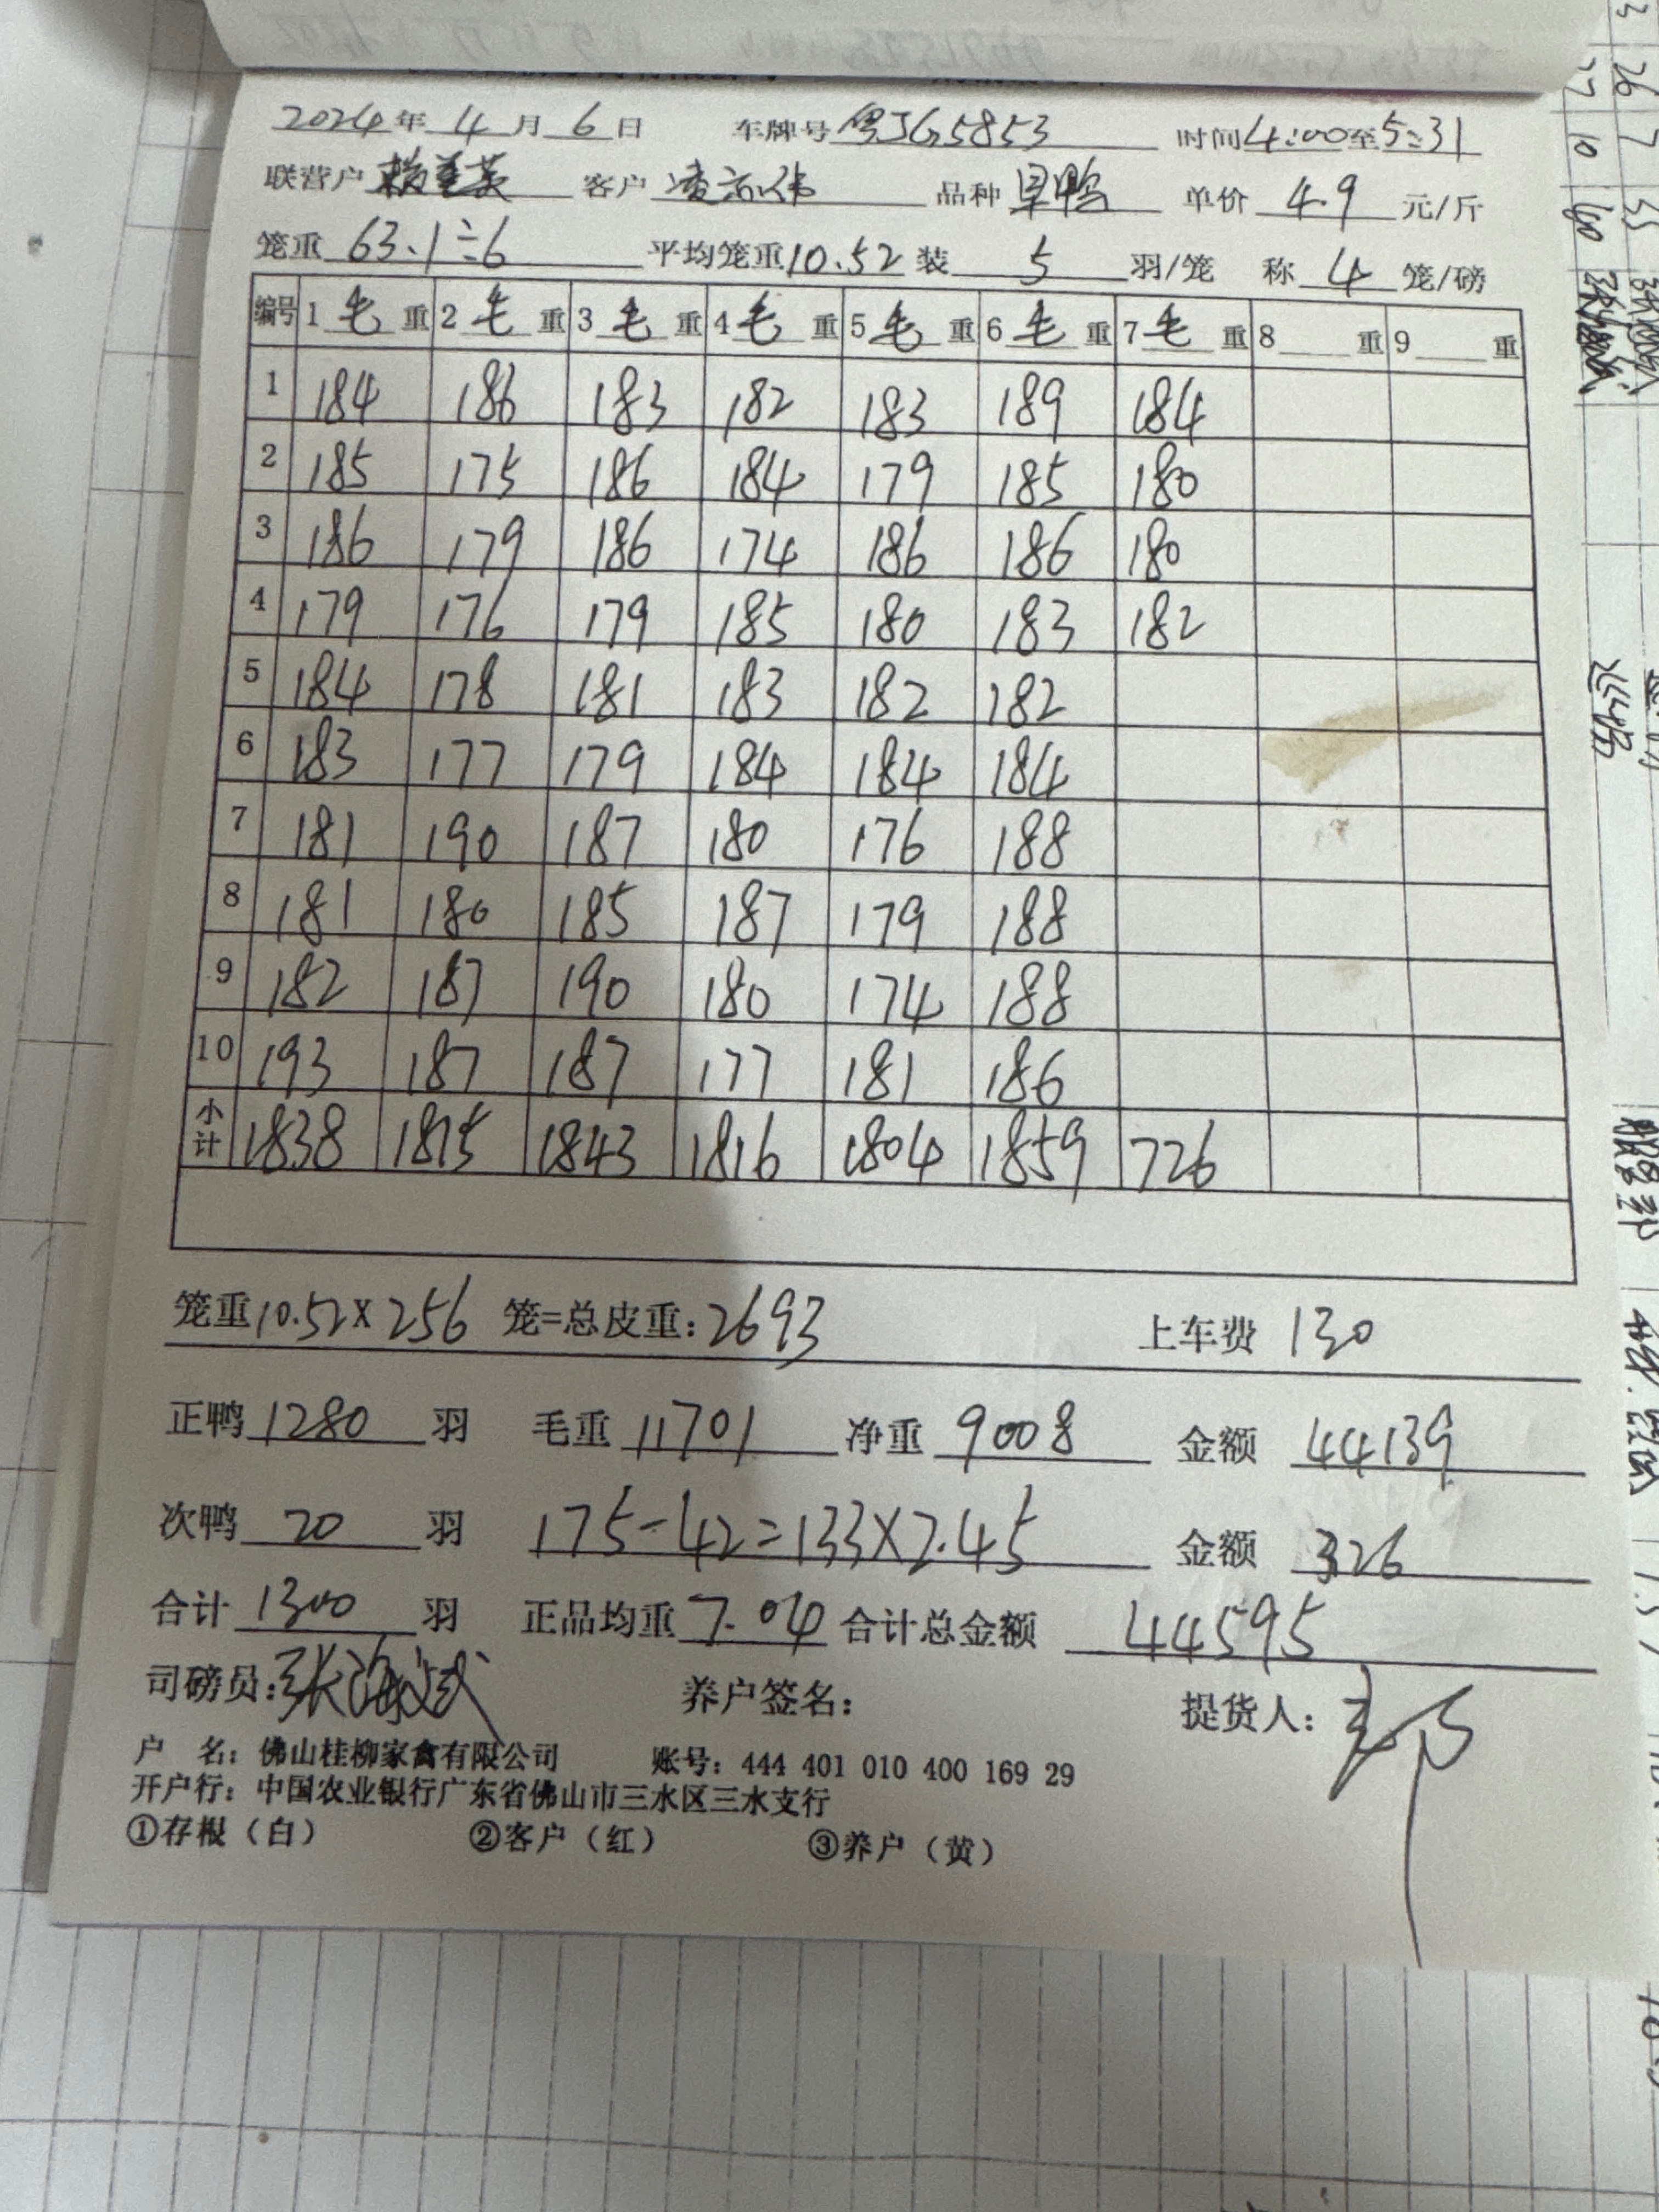 2024年 4 月 6 日 车牌号 粤JG5853 时间 4:00 至 5:31
联营户 客户 凌 伟 品种 旱鸭 单价 4.9 元/斤
笼重 63.1÷6 平均笼重 10.52 装 5 羽/笼 称 4 笼/磅
编号 1 毛 重 2 毛 重 3 毛 重 4 毛 重 5 毛 重 6 毛 重 7 毛 重 8 重 9 重
1 184 186 183 182 183 189 184
2 185 175 186 184 179 185 180
3 186 179 186 174 186 186 180
4 179 176 179 185 180 183 182
5 184 178 181 183 182 182
6 183 177 179 184 184 184
7 181 190 187 180 176 188
8 181 180 185 187 179 188
9 182 187 190 180 174 188
10 193 187 187 177 181 186
小计 1838 1815 1843 1816 1804 1859 726
笼重 10.52×256 笼=总皮重: 2693 上车费 130
正鸭 1280 羽 毛重 11701 净重 9008 金额 44139
次鸭 20 羽 175-42=133×2.45 金额 326
合计 1300 羽 正品均重 7.04 合计总金额 44595
司磅员: 张海斌 养户签名: 提货人:
户 名: 佛山桂柳家禽有限公司 账号: 444 401 010 400 169 29
开户行: 中国农业银行广东省佛山市三水区三水支行
①存根（白） ②客户（红） ③养户（黄）